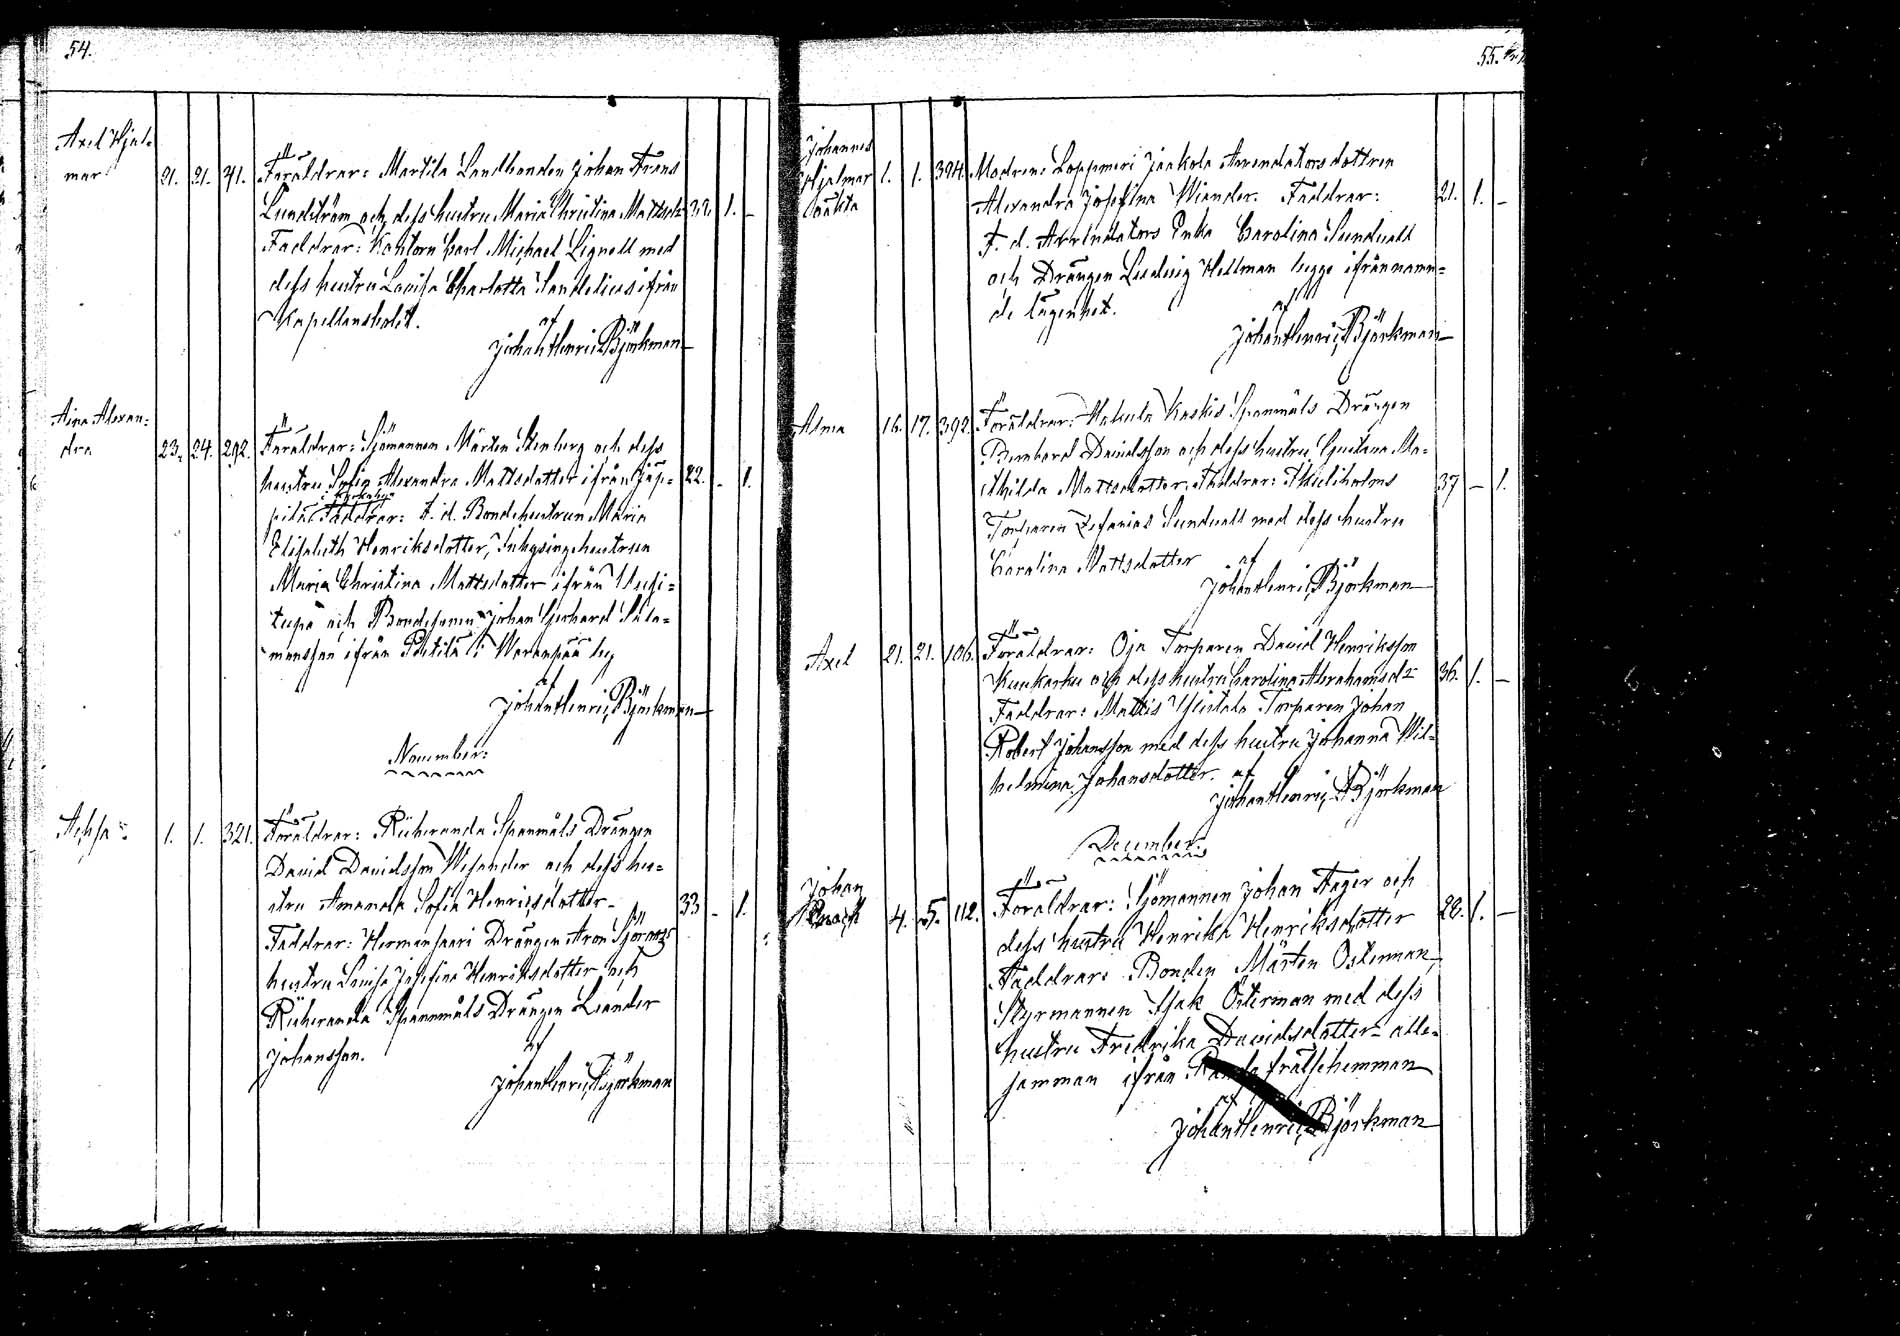 54.
Axel Hjal-
mar 21. 21. 71. Föräldrar: Martila Landbonden Johan Frans
Lundström och dess hustru Maria Christina Mattsdr 32. 1. –
Faddrar: Kantorn Carl Michael Lignell med
dess hustru Lovisa Charlotta Sandelius ifrån
Kapellansbolet.
af
Johan Henric Björkman
Aina Alexan-
dra 23. 24. 292. Föräldrar: Sjömannen Mårten Stenberg och dess
hustru Sofia Alexandra Mattsdotter ifrån 22. – 1.
Faddrar: f. d. Bondehustrun Maria
Elisabeth Henriksdotter, Inhysingehustrun
Maria Christina Mattsdotter ifrån Uusi-
tupa och Bondesonen Johan Gerhard Salo-
monsson ifrån i
af
Johan Henric Björkman
November:
1. 1. 321. Föräldrar: Riiheranda Spanmåls Drängen
David Davidsson Wesander och dess hu-
stru Amanda Sofia Henricsdotter – 33 – 1.
Faddrar: Hermansaari Drängen Aron
hustru Lovisa Josefina Henriksdotter och
Riiheranda Spannmåls Drängen Leander
Johansson.
af
Johan Henric Björkman
55.
Johannes
Hjalmar 1. 1. 394. Modren: Loppmeri Jaakola Arrendators dottren
oäkta Alexandra Josefina Wiander. Faddrar: 21. 1. –
F. d. Arrendators Enka Carolina Sundvall
och Drängen Ludvig Hellman begge ifrån namn-
de lägenhet.
af
Johan Henric Björkman
Alma 16. 17. 392. Föräldrar: Hakula Kaskis Spanmåls Drängen
Bernhard Davidsson och dess hustru Gustava Ma-
thilda Mattsdotter. Faddrar: 37 – 1.
Torparen Zefanias Sundvall med dess hustru
Carolina Mattsdotter
af
Johan Henric Björkman
Axel 21. 21. 106. Föräldrar: Oja Torparen David Henriksson
Kuukarku och dess hustru Carolina Abrahamsdr 36. 1. –
Faddrar: Mattis Torparen Johan
Robert Johansson med dess hustru Johanna Wil-
helmina Johansdotter. af
Johan Henric Björkman
December.
Johan
Enoch 4. 5. 112. Föräldrar: Sjömannen Johan Fager och
dess hustru Henrika Henriksdotter 28. 1. –
Faddrar: Bonden Mårten Österman,
Styrmannen Isak Österman med dess
hustru Fredrika Davidsdotter – alle-
samman ifrån frälsehemman
af
Johan Henric Björkman